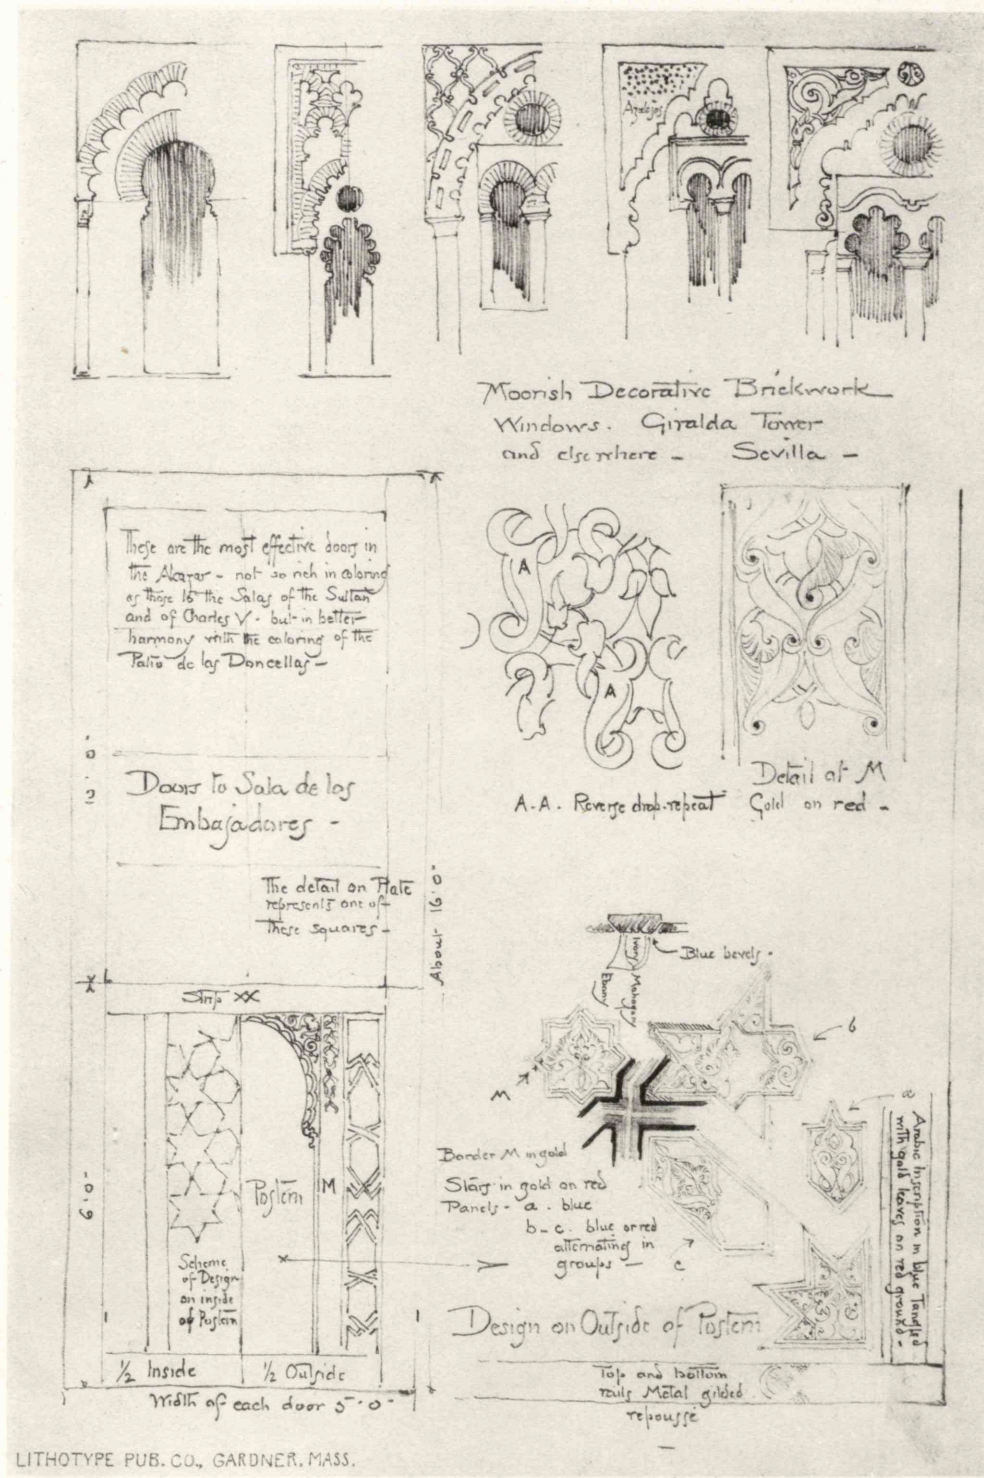 Azulejos
Moorish Decorative Brickwork
Windows. Giralda Tower
and elsewhere - Sevilla -
These are the most effective doors in
the Alcazar - not so rich in coloring
as those to the Salas of the Sultan
and of Charles V - but in better
harmony with the coloring of the
Patio de las Doncellas -
Doors to Sala de los
Embajadores -
The detail on Plate
represents one of
these squares -
About 16'0"
Strip XX
6'0"
Postern
M
Scheme
of Design
on inside
of Postern
1/2 Inside
1/2 Outside
Width of each door 5'-0"
A
A
A-A. Reverse drop-repeat
Detail at M
Gold on red -
Blue bevels.
Ivory
Ebony
Mahogany
M
b
a
c
Border M in gold
Stars in gold on red
Panels - a. blue
b-c. blue or red
alternating in
groups -
Design on Outside of Postern
Arabic Inscription in blue Tangled
with gold leaves on red ground -
Top and bottom
rails Metal gilded
repoussé
LITHOTYPE PUB. CO., GARDNER, MASS.